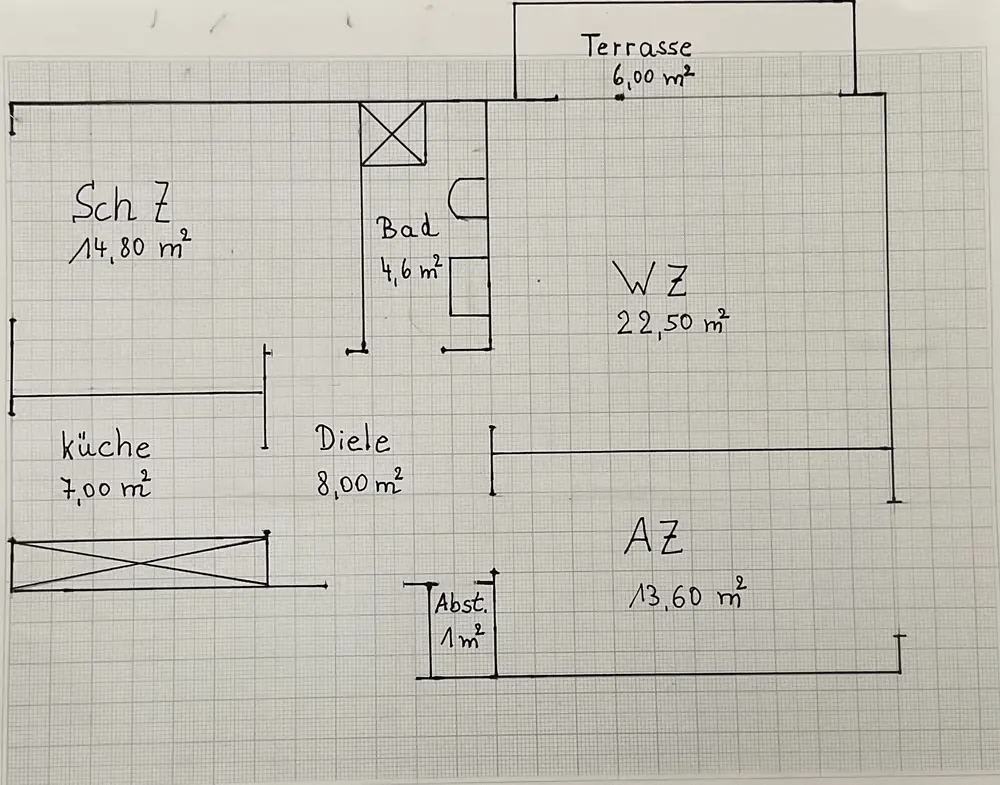 Terrasse
6,00 m²
Sch Z
14,80 m²
Bad
4,6 m²
WZ
22,50 m²
Küche
7,00 m²
Diele
8,00 m²
AZ
13,60 m²
Abst.
1 m²